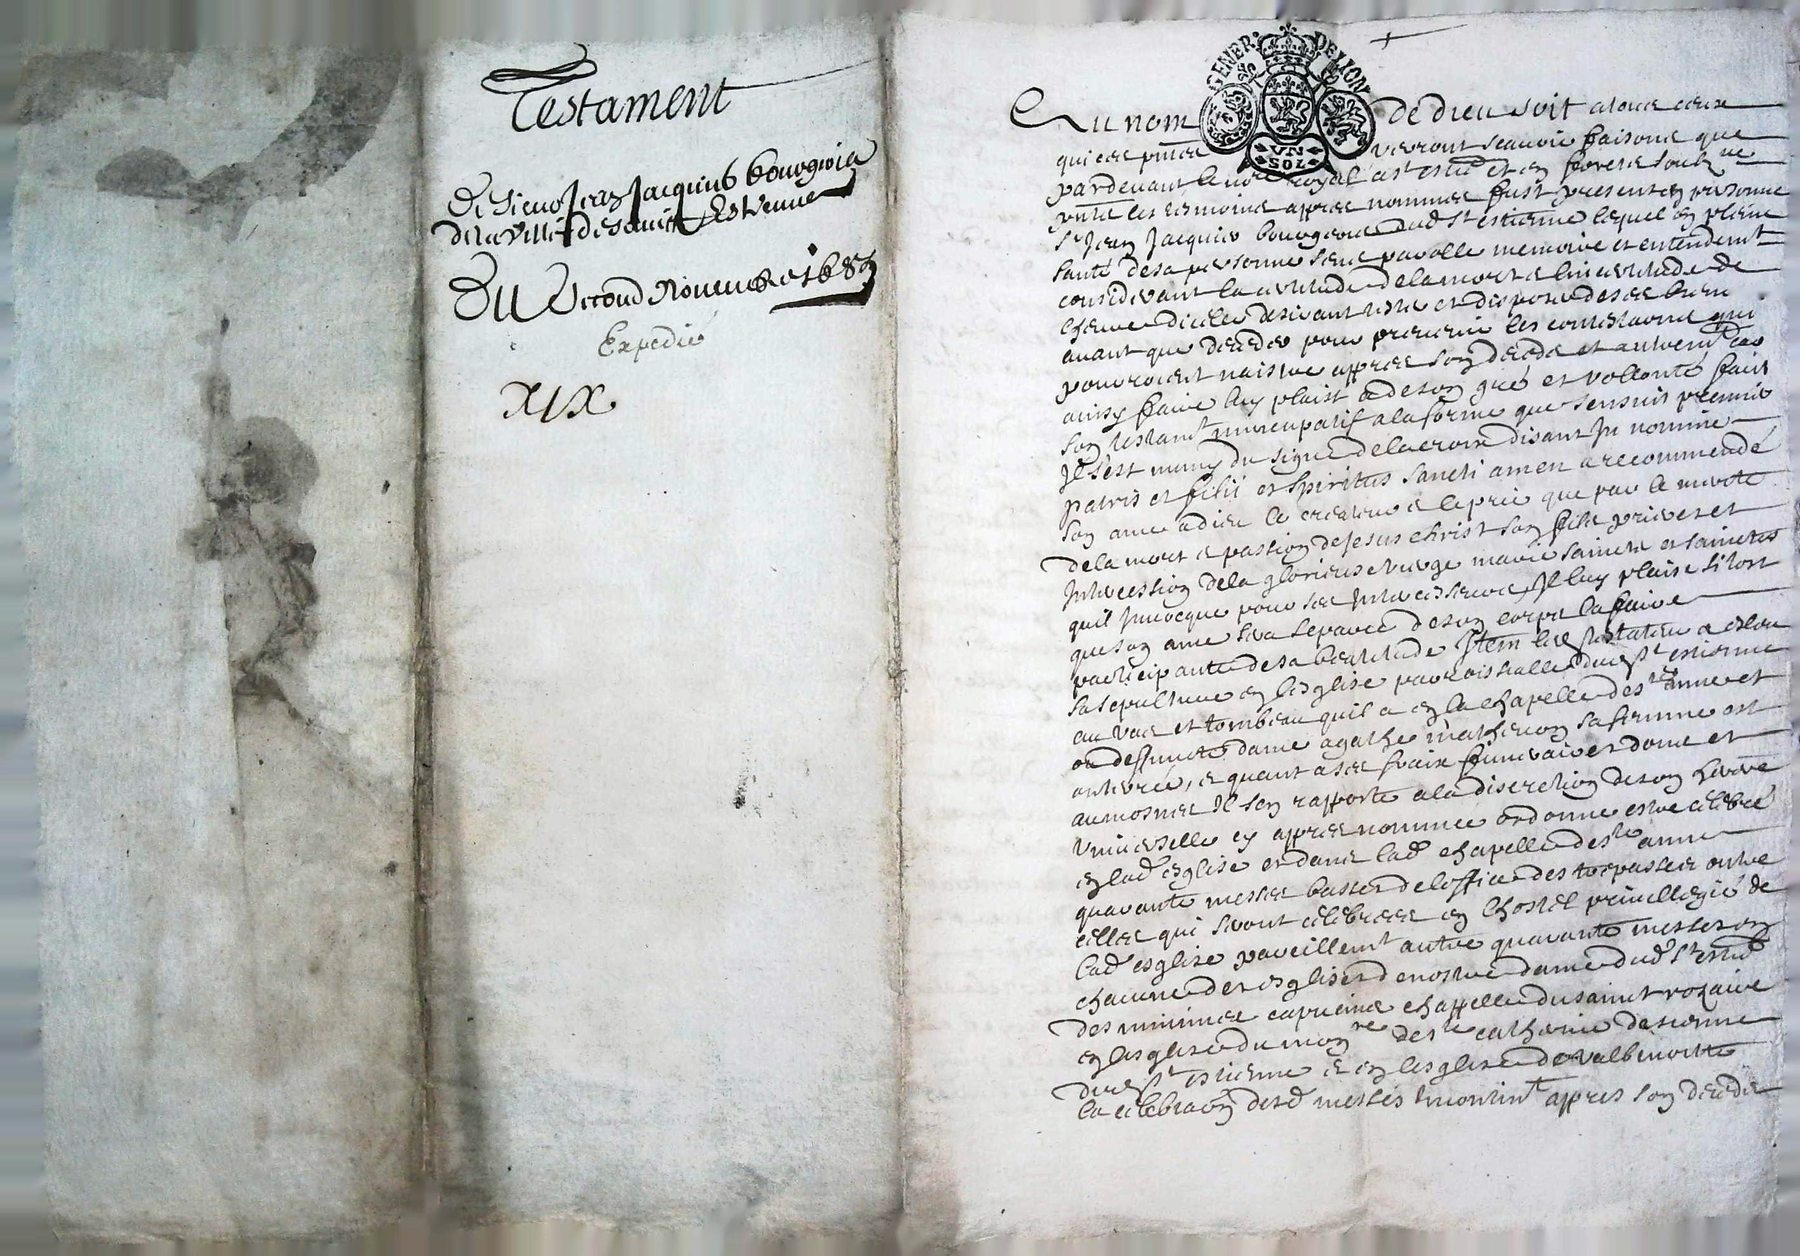 Testament
De Sieur Jean Jacquins bourgeois
de la Ville de Sainct Estienne
Du Second Novembre 168
Expedié
XIX
GENER. DE LION
VN
SOL
Au nom de dieu soit a tous ceux
qui ces pntes verront scauoir faisons que
pardeuant le no.re royal a st estie et en forests soubzne
pnts les tesmoins apres nommes fust present en personne
Sr Jean Jacquins bourgeois dud St estienne lequel en pleine
santé de sa personne sens parolle memoire et entendemt
considerant la certitude de la mort et lincertitude de
lheure dicelle desirant tester et disposer de ses biens
auant que deceder pour preuenir les contestaons qui
pourroient naistre apres son deceds et autremt car
ainsy faire luy plaist a de son gré et vollonté faict
son testamt nuncupatif a la forme que sensuit premier
Il sest muny du signe de la croix disant In nomine
patris et filii et spiritus sancti amen a recommendé
son ame a dieu le createur et le prie que par le merite
de la mort et passion de Jesus christ son fils prieres et
Intercession de la glorieuse vierge marie saincts et sainctes
quil Inuocque pour ses Intercesseurs Il luy plaise sitost
que son ame sera separée de son corps la faire
participante de sa beatitude Item led testateur a esleu
sa sepulture en lesglise parroissialle dud st estienne
au vas et tombeau quil a en la chapelle de ste anne et
ou deffuncte dame agathe matheuon sa femme est
enterrée, et quant a ses fraix funeraires dons et
aumosnes Il sen rapporte a la discretion de son herere
vniuerselle cy apres nommée ordonne estre celebré
en lad esglise et dans lad chapelle de ste anne
quarante messes basses de loffice des trepasses outre
celles qui seront celebrees en lhostel priuillegié de
lad esglise pareillemt autre quarante messes en
chacune des esglises de nostre dame dud st estie
des minimes capucins chappelle du sainct rozaire
en lesglise du mon.re de ste catherine de sienne
dud st estienne et en lesglise de valbenoitte
la celebraon desd messes Incontint apres son deceds